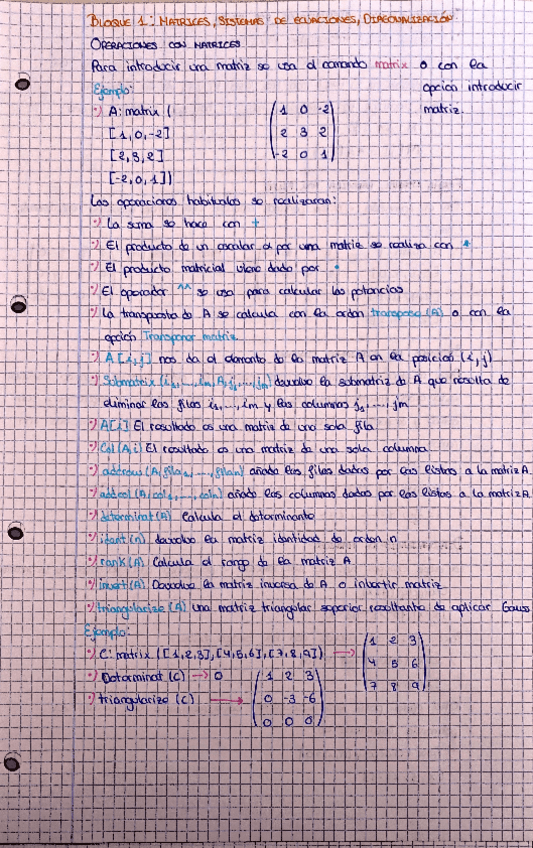 BLOQUE 1: MATRICES, SISTEMAS DE ECUACIONES, DIAGONALIZACIÓN.
OPERACIONES CON MATRICES
Para introducir una matriz se usa el comando matrix o con la
opción introducir
matriz.
Ejemplo:
·) A: matrix (
[1,0,-2]
[2,3,2]
[-2,0,1])
1 0 -2
2 3 2
-2 0 1
Las operaciones habituales se realizaran:
·) La suma se hace con +
·) El producto de un escalar α por una matriz se realiza con *
·) El producto matricial viene dado por ·
·) El operador ^^ se usa para calcular las potencias
·) La transpuesta de A se calcula con la orden transpose (A) o con la
opción Transponer matriz.
·) A[i,j] nos da el elemento de la matriz A en la posición (i,j)
·) Submatrix (i₁,...,im,A,j₁,...,jm) devuelve la submatriz de A que resulta de
eliminar las filas i₁,...,im y las columnas j₁,...,jm
·) A[i] El resultado es una matriz de una sola fila
·) Col(A,i) El resultado es una matriz de una sola columna
·) addrow (A,fila₁,...,filan) añade las filas dadas por las listas a la matriz A.
·) addcol (A,col₁,...,coln) añade las columnas dadas por las listas a la matriz A
·) determinat (A) Calcula el determinante
·) ident (n) devuelve la matriz identidad de orden n
·) rank (A) Calcula el rango de la matriz A
·) invert (A) Devuelve la matriz inversa de A o invertir matriz
·) triangularize (A) una matriz triangular superior resultante de aplicar Gauss
Ejemplo:
·) C: matrix ([1,2,3],[4,5,6],[7,8,9]) →
1 2 3
4 5 6
7 8 9
·) Determinat (C) → 0
·) triangularize (C) →
1 2 3
0 -3 -6
0 0 0